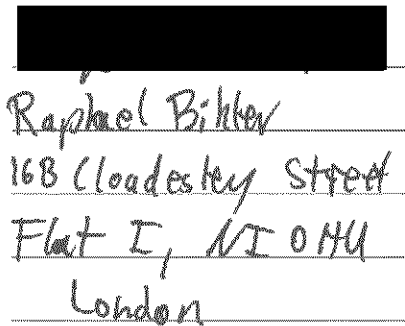 Raphael Bihler
16B Cloadesley Street
Flat I, NI 0HU
London